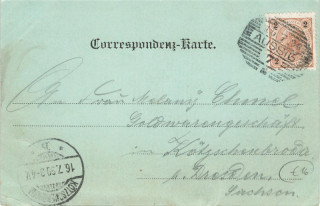 Correspondenz-Karte.
2
AUSSIG
An Frau Melanÿ Thmel
Goldwarengeschäft
in Kötzschenbroda
b. Dresden.
Sachsen.
16.7.99.